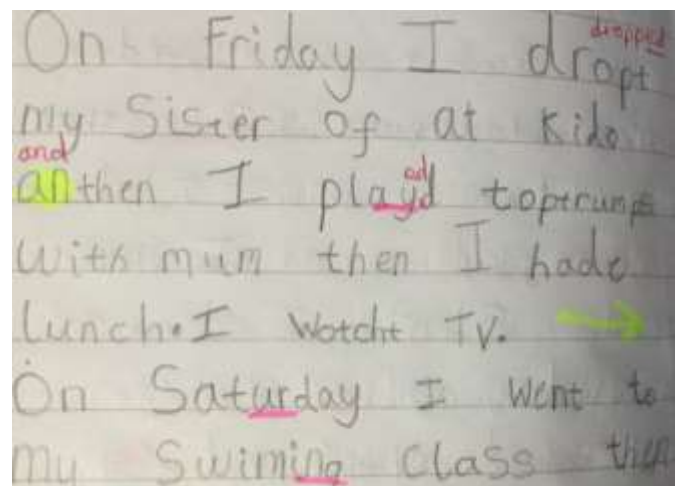 dropped
On Friday I dropt
my Sister of at Kido
and
anthen I playd toptrumps
ed
With mum then I hade
Lunch. I Wotcht TV.
On Saturday I Went to
my Swiming Class then